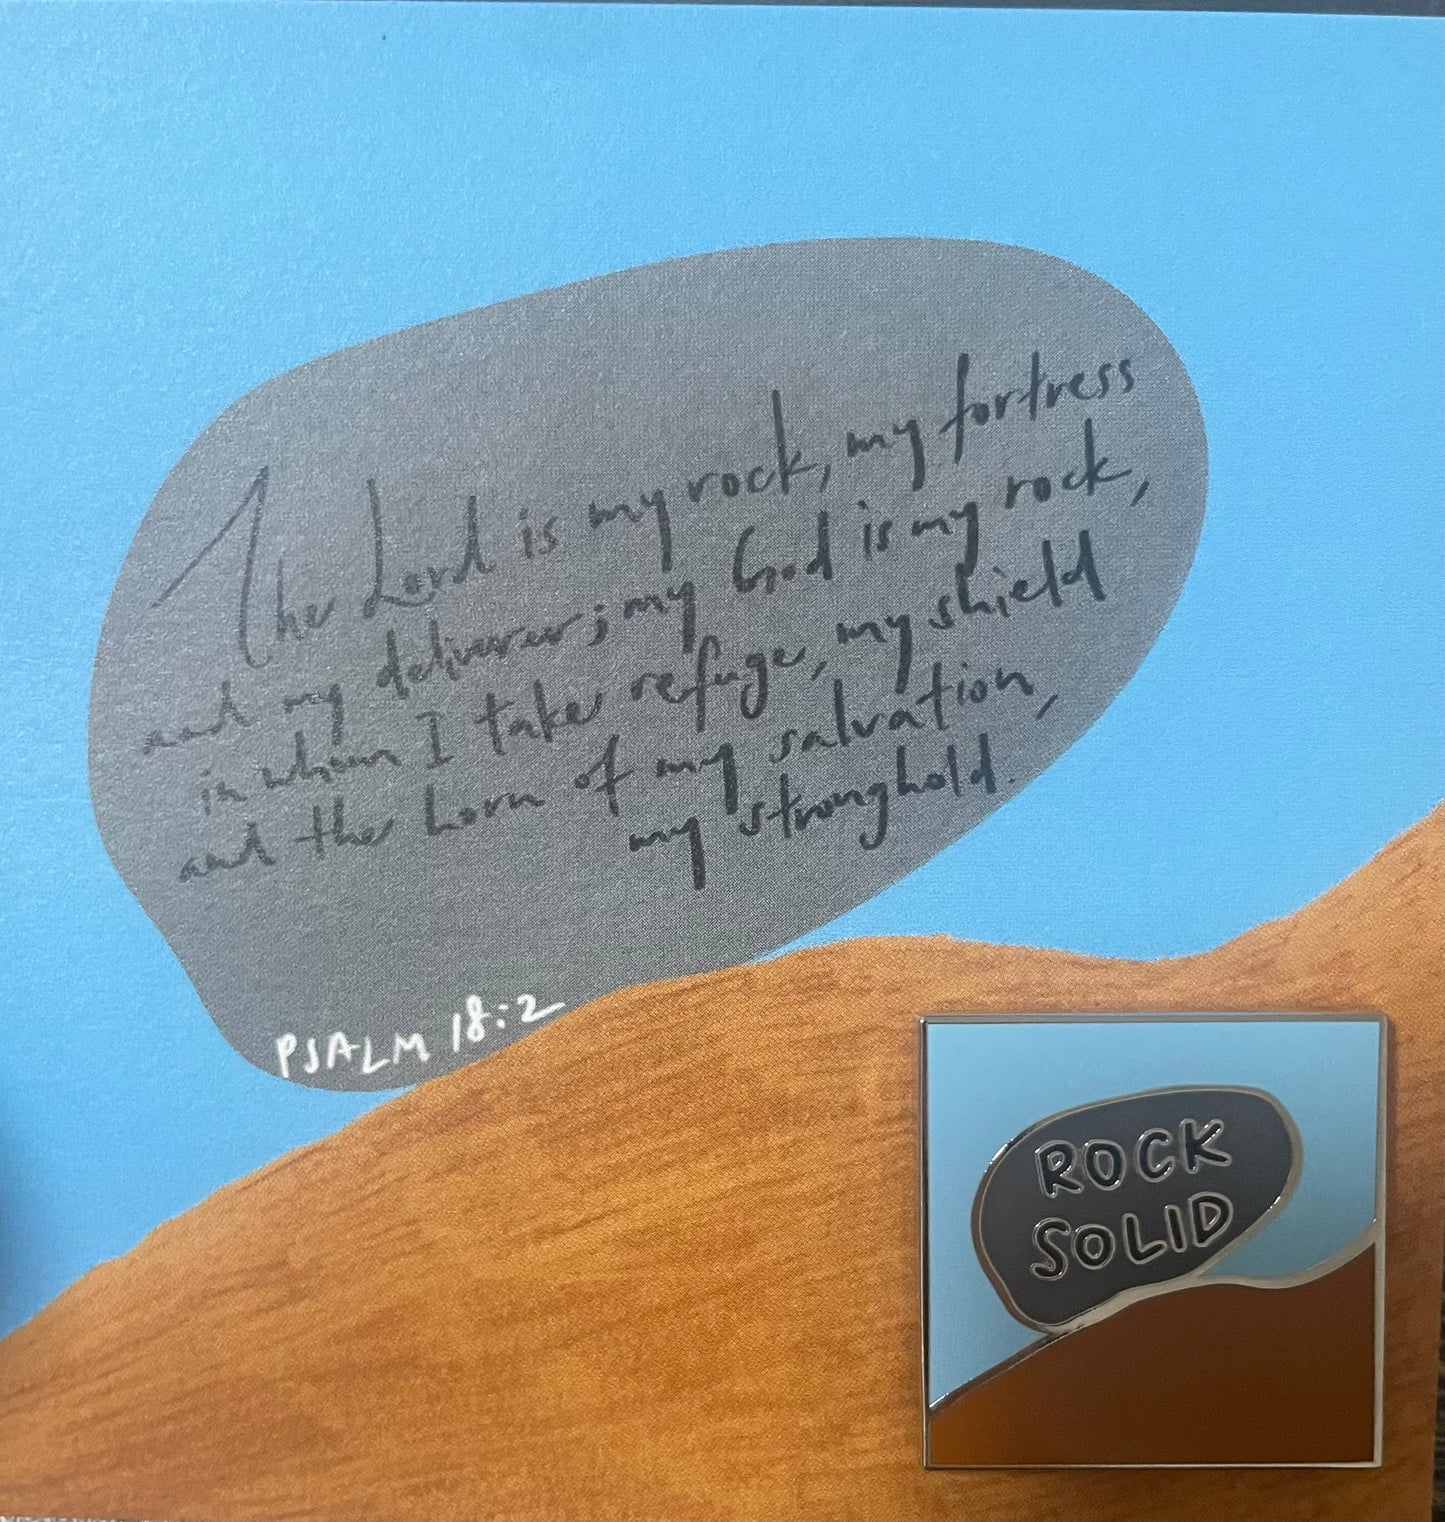 The Lord is my rock, my fortress
and my deliverer; my God is my rock,
in whom I take refuge, my shield
and the horn of my salvation,
my stronghold.
PSALM 18:2
ROCK
SOLID